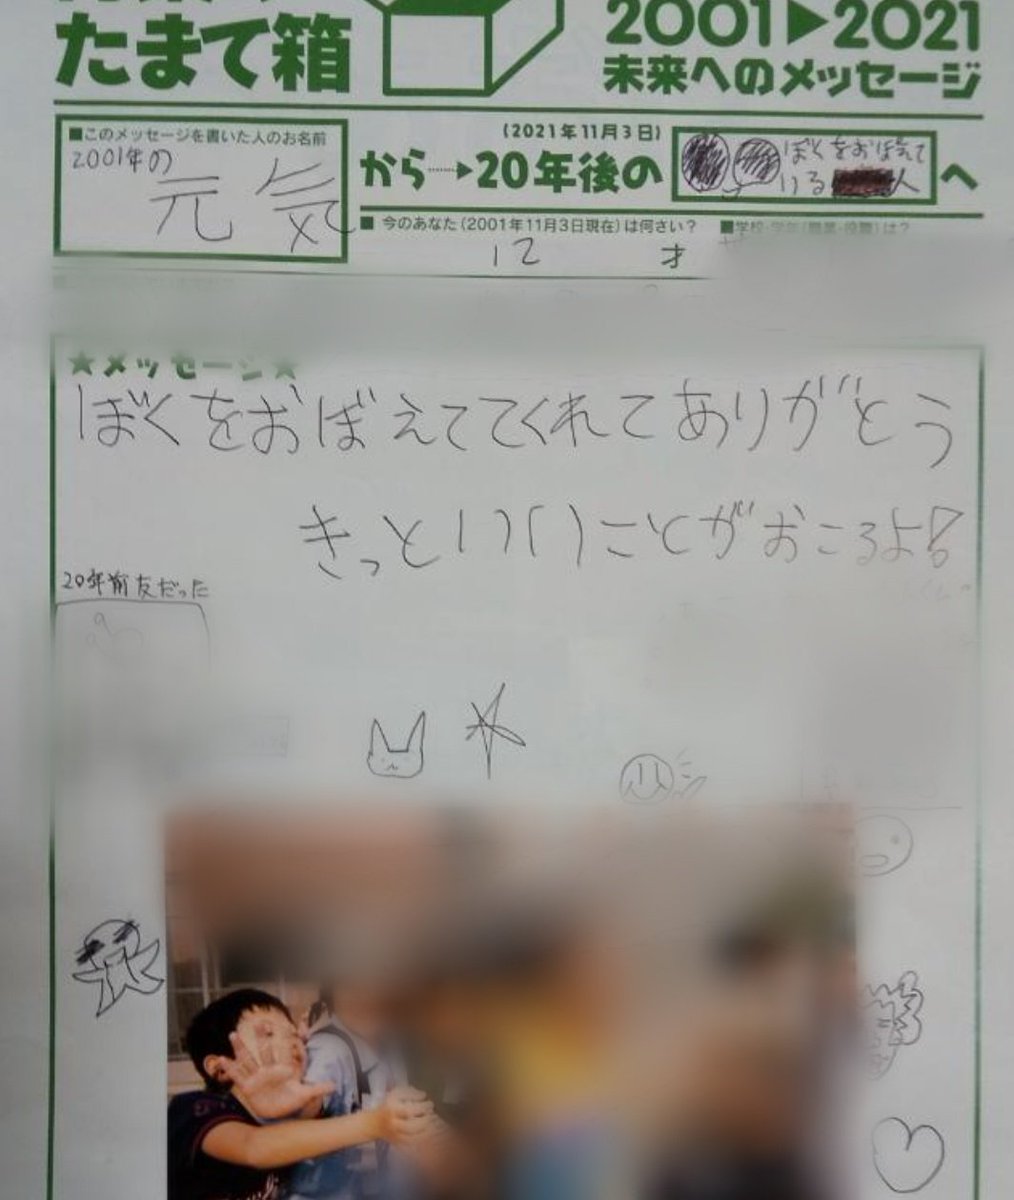 たまて箱
2001▶2021
未来へのメッセージ
■このメッセージを書いた人のお名前
2001年の
元気
(2021年11月3日)
から→20年後の
ぼくをおぼえて
いる 人
へ
■ 今のあなた(2001年11月3日現在)は何さい?
12 才
■学校・学年(職業・役職)は?
★メッセージ★
ぼくをおぼえててくれてありがとう
きっといいことがおこるよ!
20年前友だった